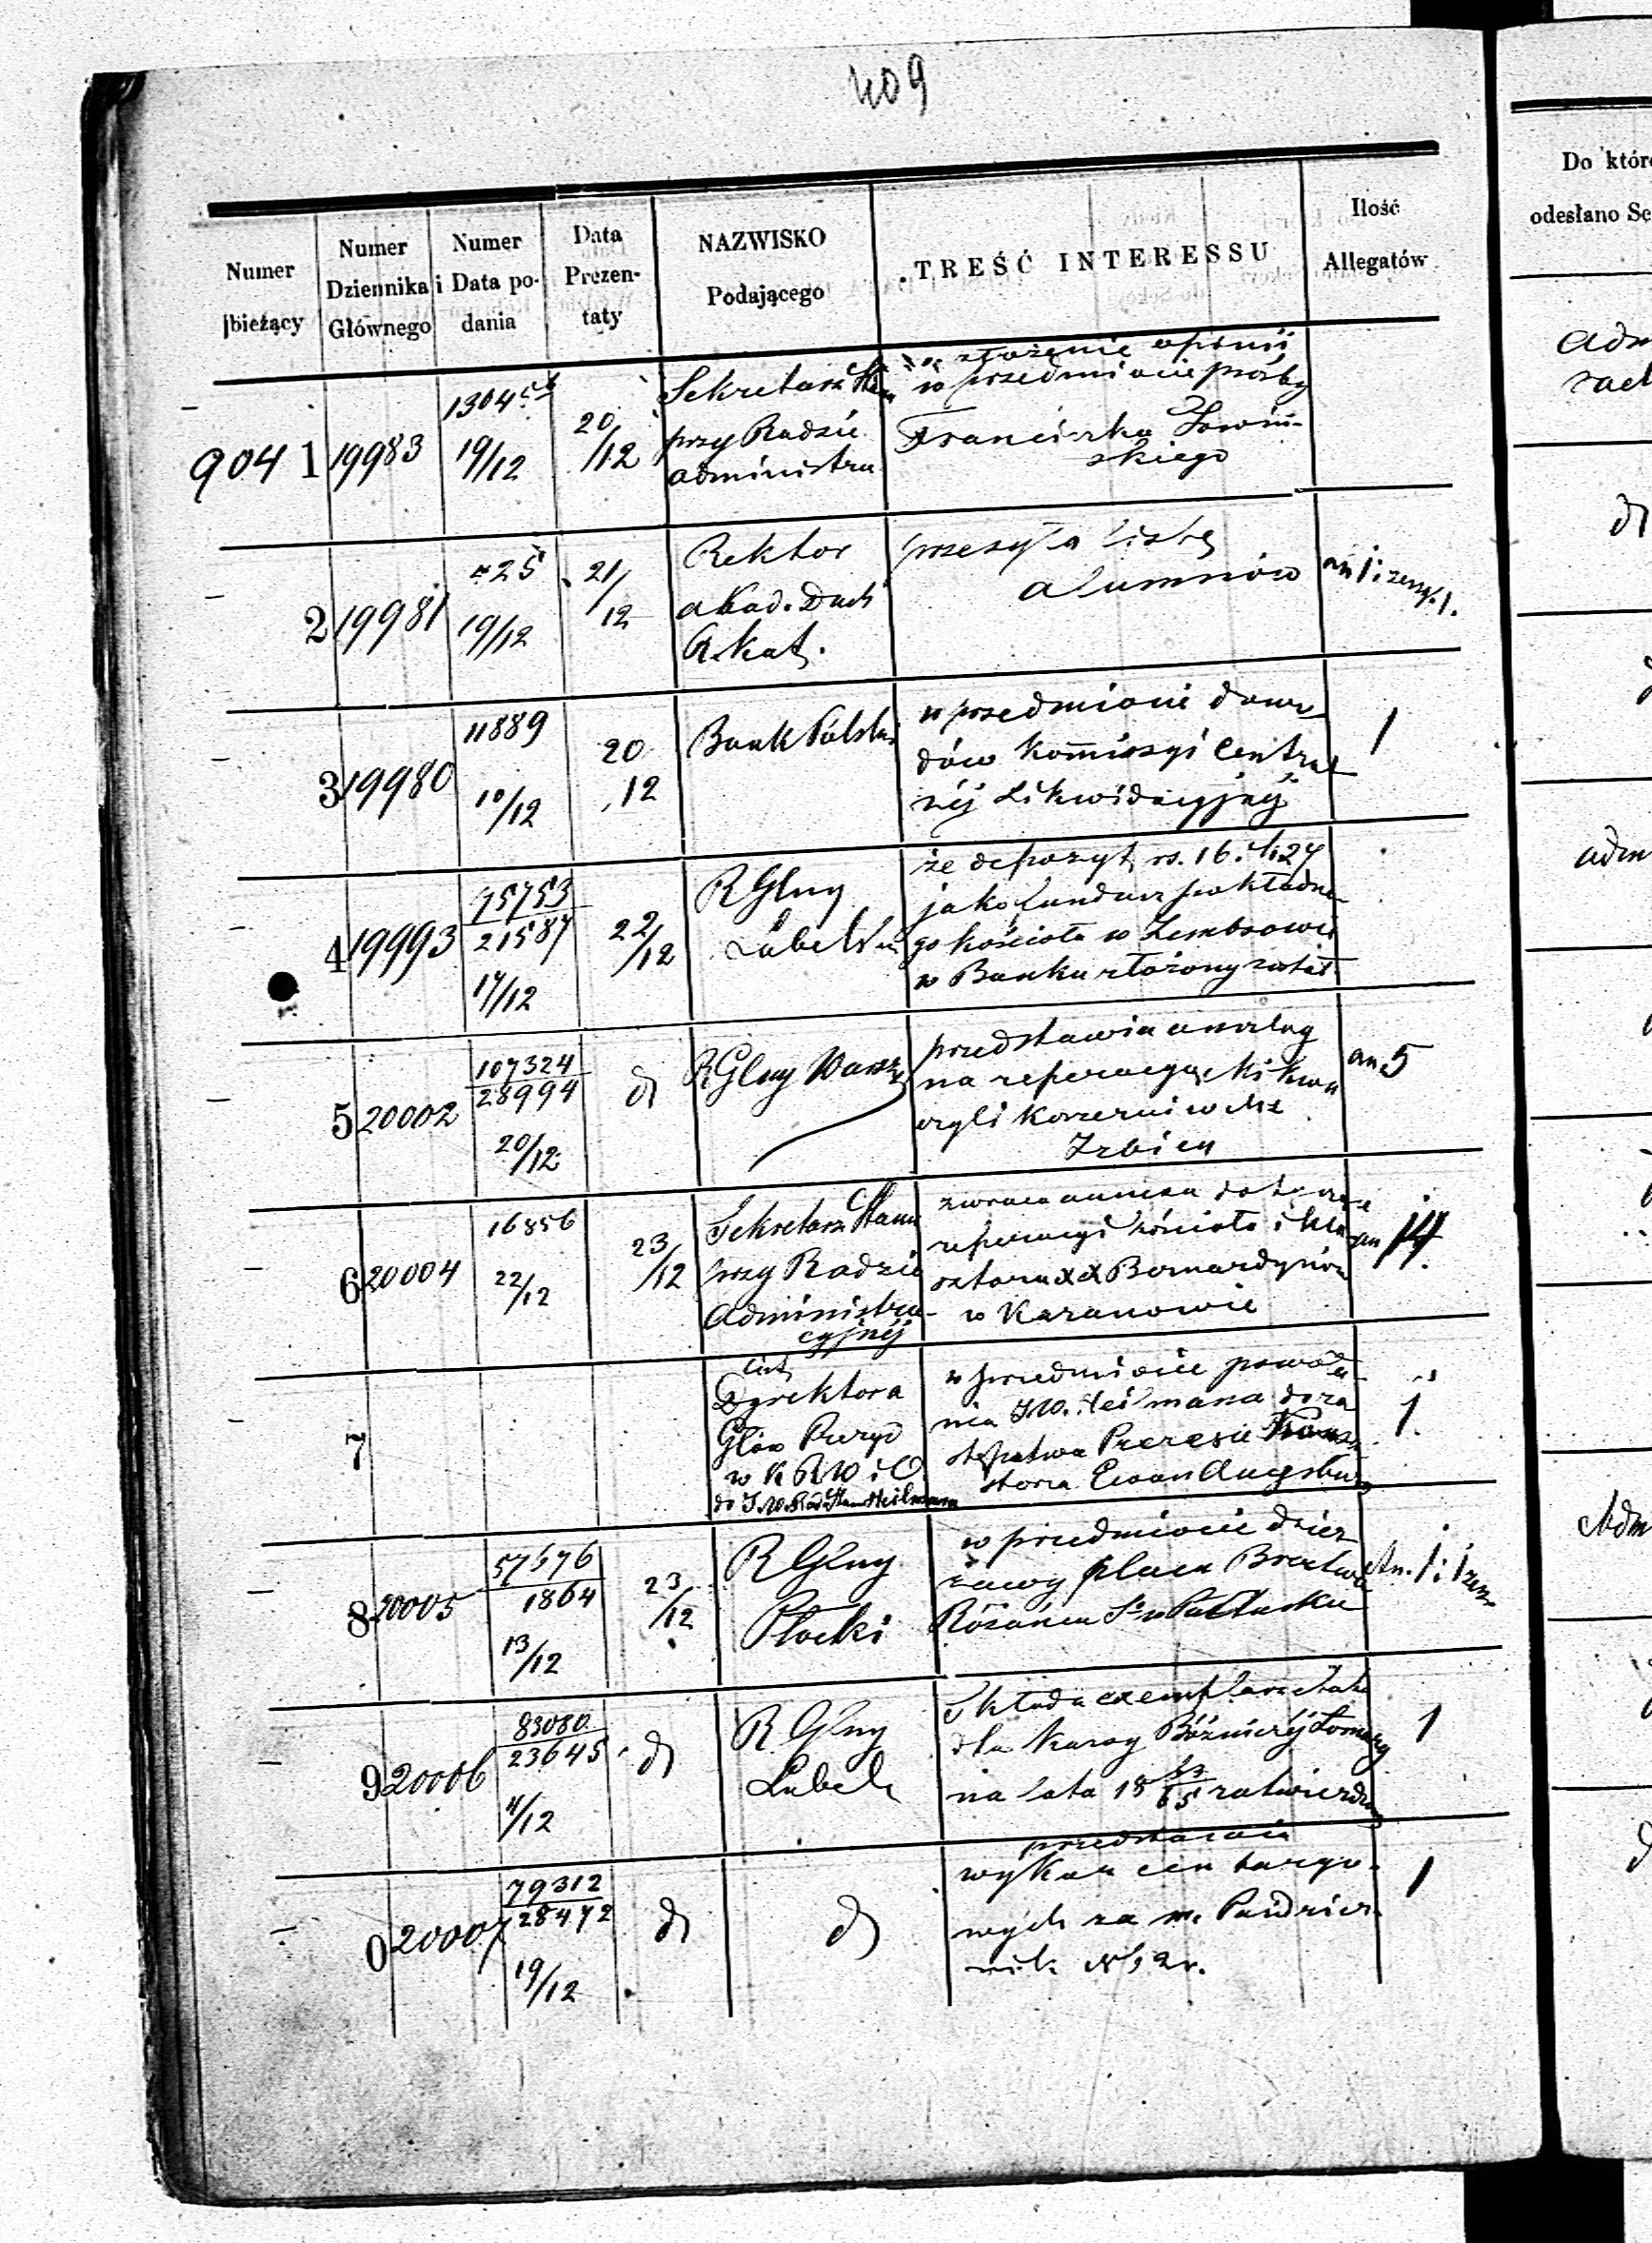 409
Numer bieżący
Numer Dziennika Głównego
Numer i Data podania
Data Prezentaty
NAZWISKO Podającego
TREŚĆ INTERESSU
Ilość Allegatów
Do któr
odesłano Se
904 1
19983
19/12
20/12
Sekretarz
przy Radzie
administra
złożenie opinii
w przedmiocie prośby
Franciszka
skiego
2
19981
25
19/12
21/12
Rektor
akad. Duch
R. Kat.
przesyła listę
alumnów
an 1 i zeszyt 1.
3
19980
11889
10/12
20
12
Bank Polski
w przedmiocie dowo
dów Kommissyi Central
néj Likwidacyjnéj
1
4
19993
75753
21587
17/12
22/12
R Glny
Lubelski
że depozyt rs. 16. k. 27
jako fundusz
go kościoła w
w Banku złożony został
5
20002
107324
28994
20/12
d
R Glny Warsz
przedstawia anszlag
na reperacyą Mikwu
czyli w M
Izbica
an. 5
6
20004
16856
22/12
23/12
Sekretarz Stanu
przy Radzie
Administra-
cyjnéj
zwraca annexa
reperacyi kościoła i kla
sztoru XX Bernardynów
w Kazanowie
an 14.
7
List
Dyrektora
Głów
w K R W i O.
do J.W. Rad. Stanu Heilmana
w przedmiocie powoła
nia J.W. Heilmana do za
stępstwa Prezesa
storza Ewan Augsburg
1.
8
20005
57576
1864
13/12
23/12
R Glny
Płocki
w przedmiocie dzier
żawy placu Bractwa
Różańca S w Pułtusku
An. 1 i 1 zesz
9
20006
83080
23645
4/12
d
R Glny
Lubels
Składa exemplarz Etatu
dla Kassy Bóżniczéj
na lata 18 63/65 zatwierdzony
1
0
20007
79312
28472
19/12
d
d
przedstawia
wykaz cen targo-
wych za m. Paździer-
nik 1862 r.
1